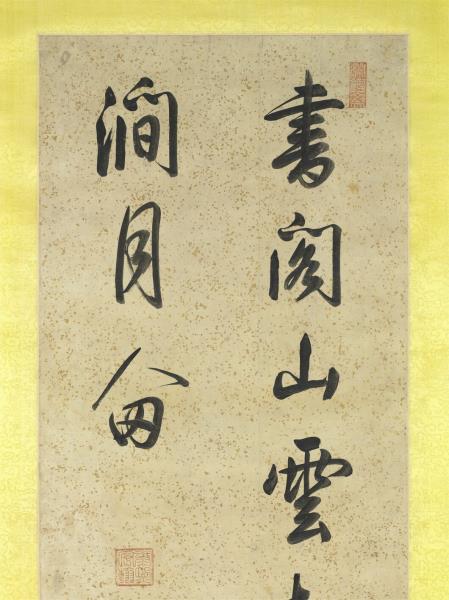 書閣山雲
澗月留